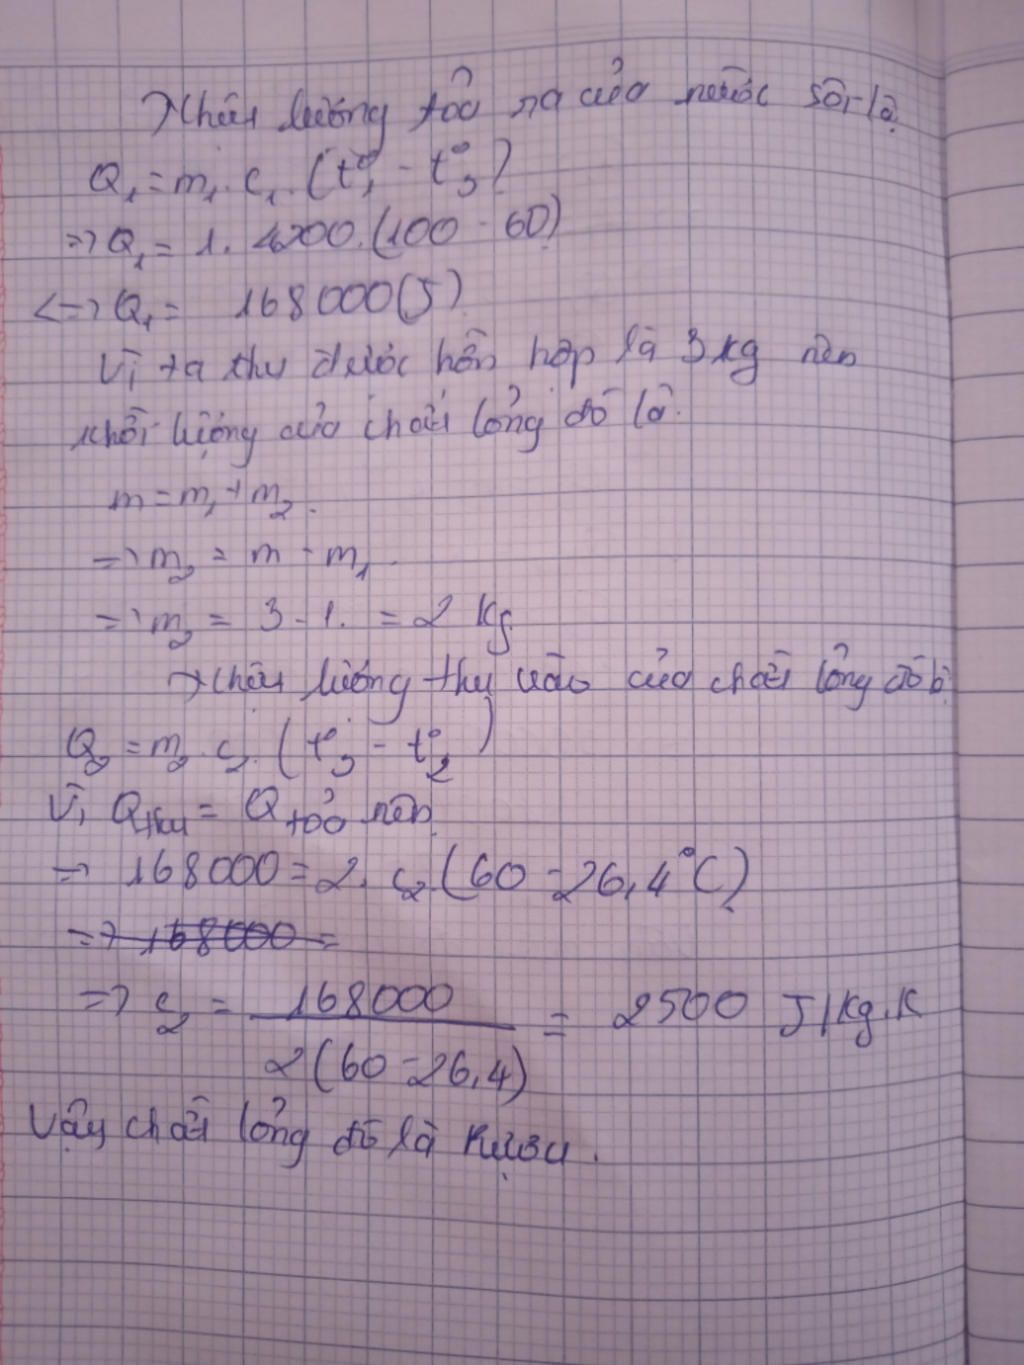 Nhiệt lượng tỏa ra của nước sôi là
Q₁ = m₁. c₁. (t°₁ - t°₃)
=> Q₁ = 1. 4200. (100 - 60)
<=> Q₁ = 168000(J)
Vì ta thu được hỗn hợp là 3 kg nên
khối lượng của chất lỏng đó là.
m = m₁ + m₂.
=> m₂ = m - m₁.
=> m₂ = 3 - 1. = 2 Kg
Nhiệt lượng thu vào của chất lỏng đó là
Q₂ = m₂. c₂. (t°₃ - t°₂)
Vì Qthu = Qtỏa nên
=> 168000 = 2. c₂ (60 - 26,4°C)
=> 168000 =
=> c₂ = 168000 / 2(60 - 26,4) = 2500 J/Kg.K
Vậy chất lỏng đó là Rượu.